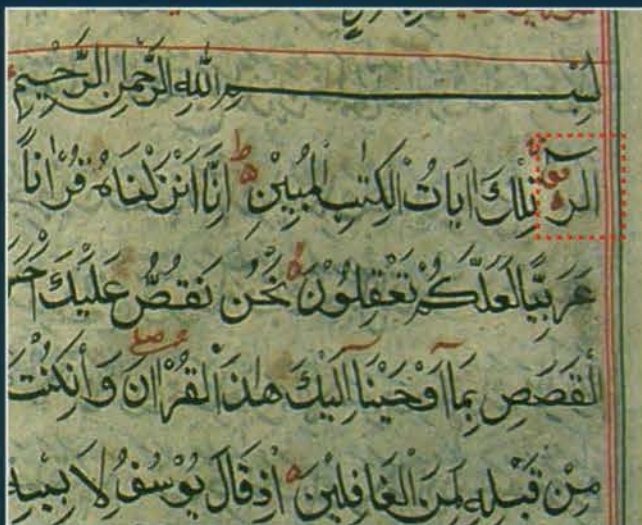 بِسْمِ اللهِ الرَّحْمٰنِ الرَّحِيْمِ
الٓرٰ تِلْكَ اٰيَاتُ الْكِتٰبِ الْمُبِيْنِ ط اِنَّا اَنْزَلْنَاهُ قُرْاٰنًا
عَرَبِيًّا لَعَلَّكُمْ تَعْقِلُوْنَ نَحْنُ نَقُصُّ عَلَيْكَ
الْقَصَصِ بِمَا اَوْحَيْنَا اِلَيْكَ هٰذَا الْقُرْاٰنَ وَاِنْ كُنْتَ
مِنْ قَبْلِهِ لَمِنَ الْغَافِلِيْنَ اِذْ قَالَ يُوْسُفُ لِاَبِيْهِ